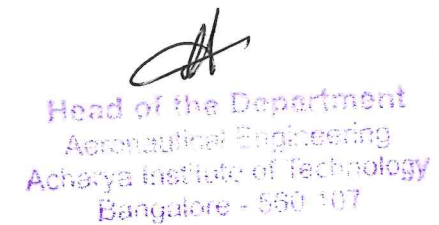 Head of the Department
Aeronautical Engineering
Acharya Institute of Technology
Bangalore - 560 107